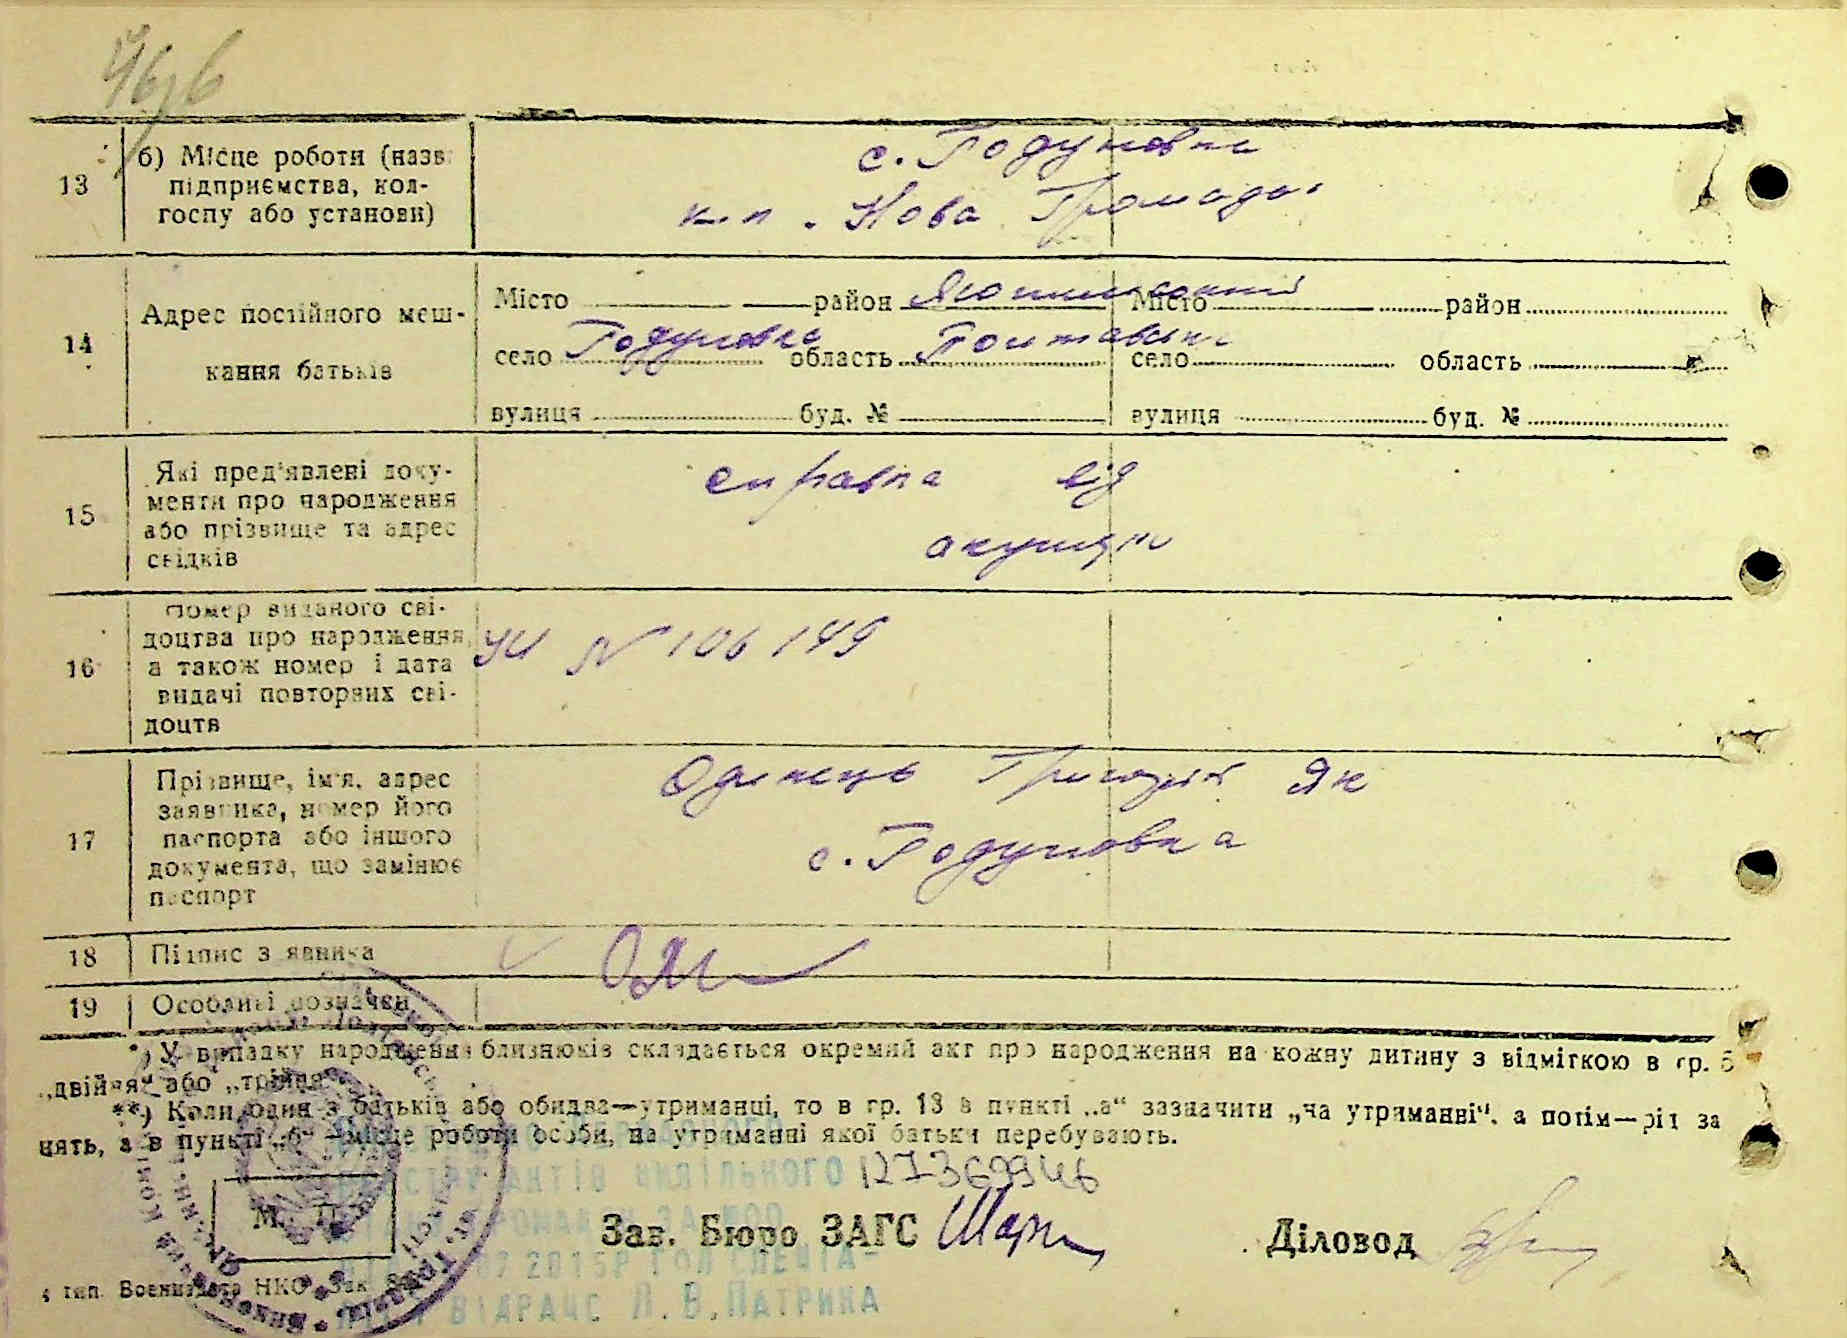 13
б) Місце роботи (назв
підприємства, кол-
госпу або установи)
с. Годуновка
к-п „Нова Громада"
14
Адрес постійного меш-
кання батьків
Місто район Яготинський Місто район
село Годуновка область Полтавська село область
вулиця буд. № вулиця буд. №
15
Які пред'явлені доку-
менти про народження
або прізвище та адрес
свідків
справка від
акушерки
16
Номер виданого сві-
доцтва про народження,
а також номер і дата
видачі повторних сві-
доцтв
№ 106149
17
Прізвище, ім'я, адрес
заявника, номер його
паспорта або іншого
документа, що замінює
паспорт
Одинець Григорій Як
с. Годуновка
18
Підпис заявника
19
Особливі позначен
*) У випадку народження близнюків складається окремий акт про народження на кожну дитину з відміткою в гр. 5
„двійня" або „трійня".
**) Коли один з батьків або обидва—утриманці, то в гр. 13 в пункті „а" зазначити „на утриманні", а потім—рід за
нять, а в пункті „б"—місце роботи особи, на утриманні якої батьки перебувають.
М. П.
АКТІВ ЦИВІЛЬНОГО
127369946
Зав. Бюро ЗАГС
Діловод
2015Р
тип. Воениздата НКО Зак
ВІДРАЦС Л.В.ПАТРИКА